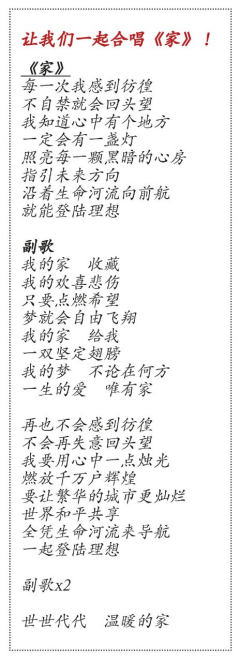 让我们一起合唱《家》！
《家》
每一次我感到彷徨
不自禁就会回头望
我知道心中有个地方
一定会有一盏灯
照亮每一颗黑暗的心房
指引未来方向
沿着生命河流向前航
就能登陆理想
副歌
我的家　收藏
我的欢喜悲伤
只要点燃希望
梦就会自由飞翔
我的家　给我
一双坚定翅膀
我的梦　不论在何方
一生的爱　唯有家
再也不会感到彷徨
不会再失意回头望
我要用心中一点烛光
燃放千万户辉煌
要让繁华的城市更灿烂
世界和平共享
全凭生命河流来导航
一起登陆理想
副歌x2
世世代代　温暖的家